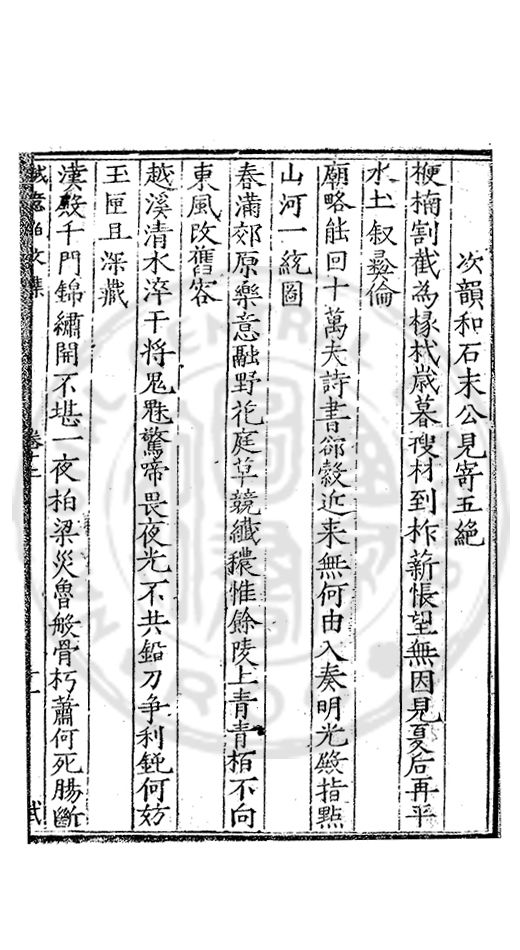 次韻和石末公見寄五絶
楩楠割截為椽杙歳暮搜材到柞薪悵望無因見夏后再平
水土叙彛倫
廟略能回十萬夫詩書郤縠近来無何由入奏明光殿指㸃
山河一統圖
春滿郊原樂意融野花庭草競纖穠惟餘陵上青青栢不向
東風改舊容
越溪清水淬干将鬼魅驚啼畏夜光不共鉛刀争利鈍何妨
玉匣且深藏
漢殿千門錦繡開不堪一夜柏梁災魯般骨朽蕭何死腸斷
卷十二